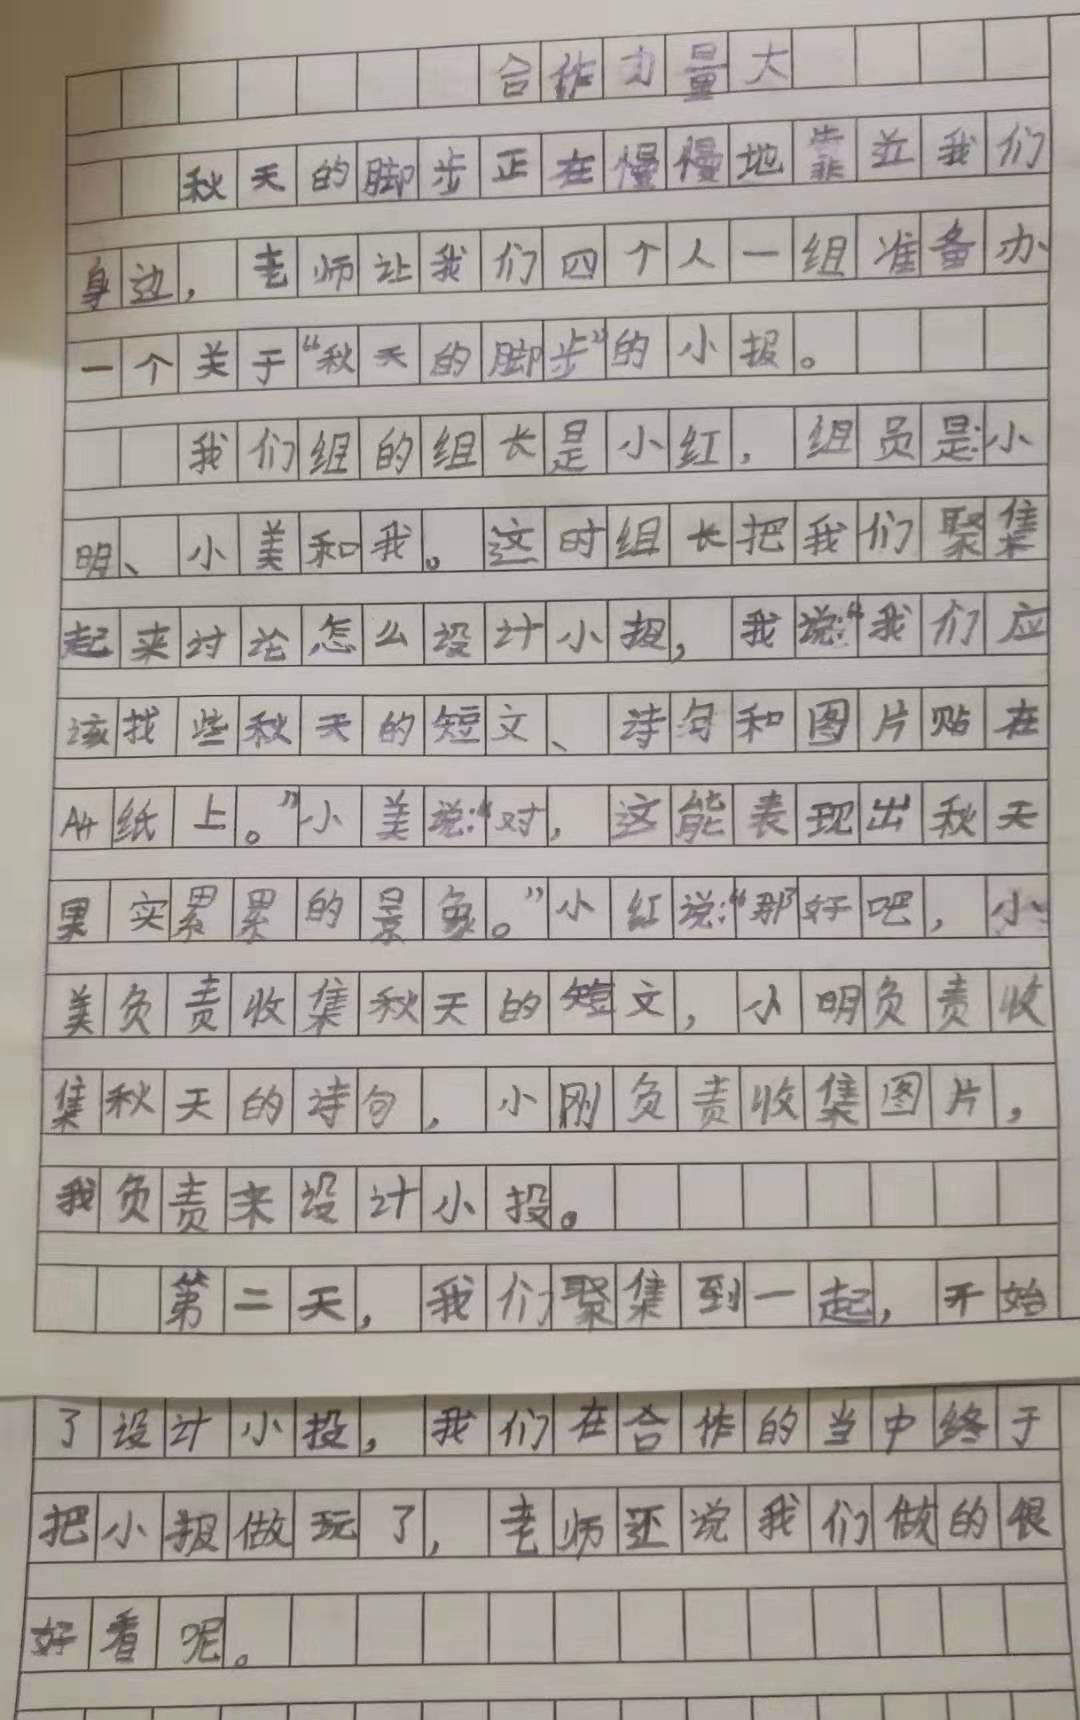 合作力量大
秋天的脚步正在慢慢地靠近我们
身边，老师让我们四个人一组准备办
一个关于“秋天的脚步”的小报。
我们组的组长是小红，组员是小
明、小美和我。这时组长把我们聚集
起来讨论怎么设计小报，我说：“我们应
该找些秋天的短文、诗句和图片贴在
A4纸上。”小美说：“对，这能表现出秋天
果实累累的景象。”小红说：“那好吧，小
美负责收集秋天的短文，小明负责收
集秋天的诗句，小刚负责收集图片，
我负责来设计小投。
第二天，我们聚集到一起，开始
了设计小投，我们在合作的当中终于
把小报做玩了，老师还说我们做的很
好看呢。